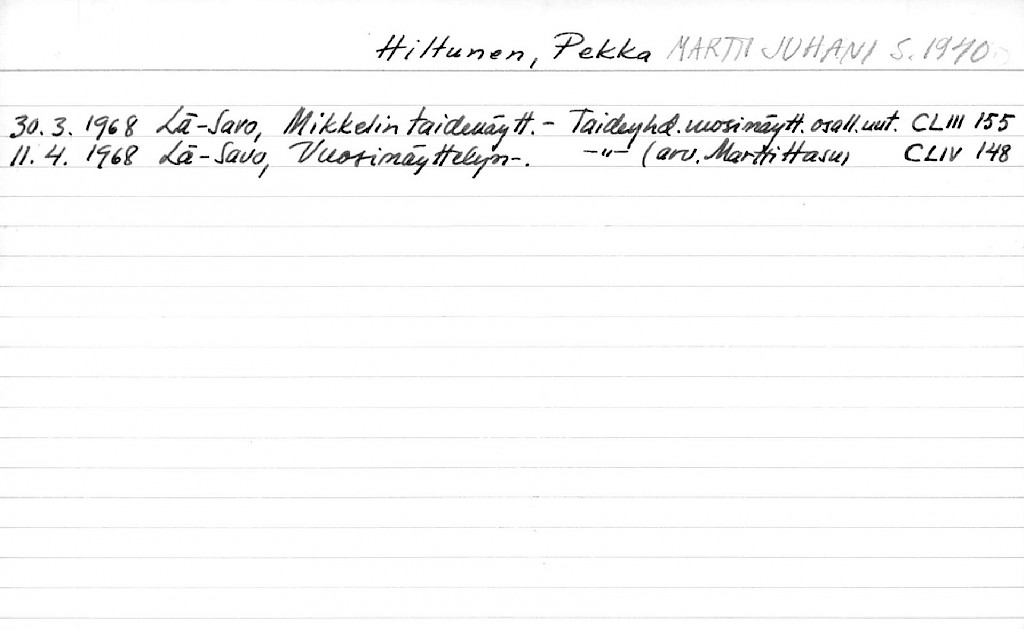 Hiltunen, Pekka MARTTI JUHANI S. 1940
30. 3. 1968 Lä-Savo, Mikkelin taidenäytt. - Taideyhd. vuosinäytt. osall. uut. CLIII 155
11. 4. 1968 Lä-Savo, Vuosinäyttelyn-. -"- (arv. Martti Hasu) CLIV 148